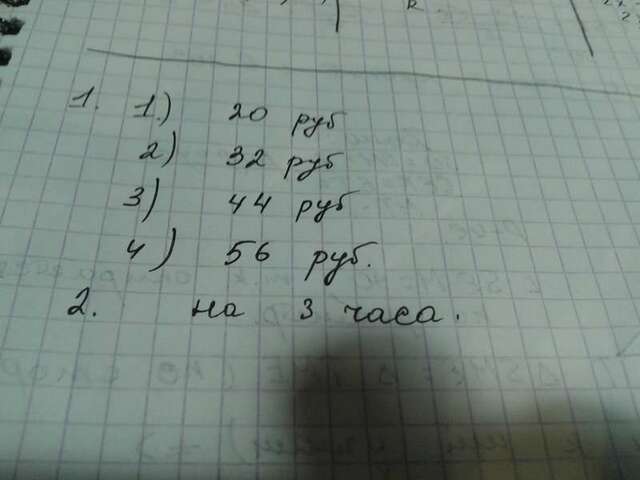 1. 1) 20 руб
2) 32 руб
3) 44 руб
4) 56 руб.
2. на 3 часа.